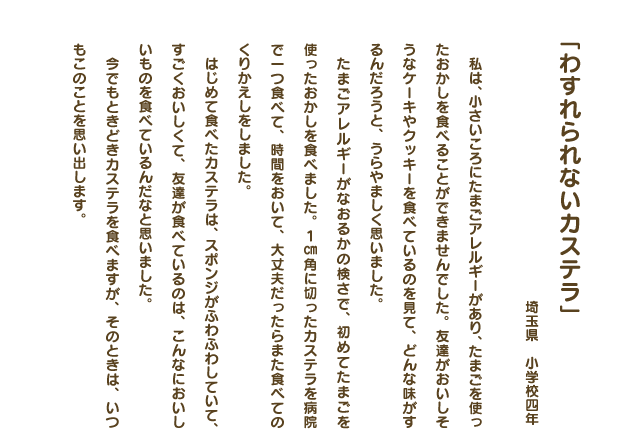 「わすれられないカステラ」
埼玉県　小学校四年
私は、小さいころにたまごアレルギーがあり、たまごを使っ
たおかしを食べることができませんでした。友達がおいしそ
うなケーキやクッキーを食べているのを見て、どんな味がす
るんだろうと、うらやましく思いました。
たまごアレルギーがなおるかの検さで、初めてたまごを
使ったおかしを食べました。１㎝角に切ったカステラを病院
で一つ食べて、時間をおいて、大丈夫だったらまた食べての
くりかえしをしました。
はじめて食べたカステラは、スポンジがふわふわしていて、
すごくおいしくて、友達が食べているのは、こんなにおいし
いものを食べているんだなと思いました。
今でもときどきカステラを食べますが、そのときは、いつ
もこのことを思い出します。